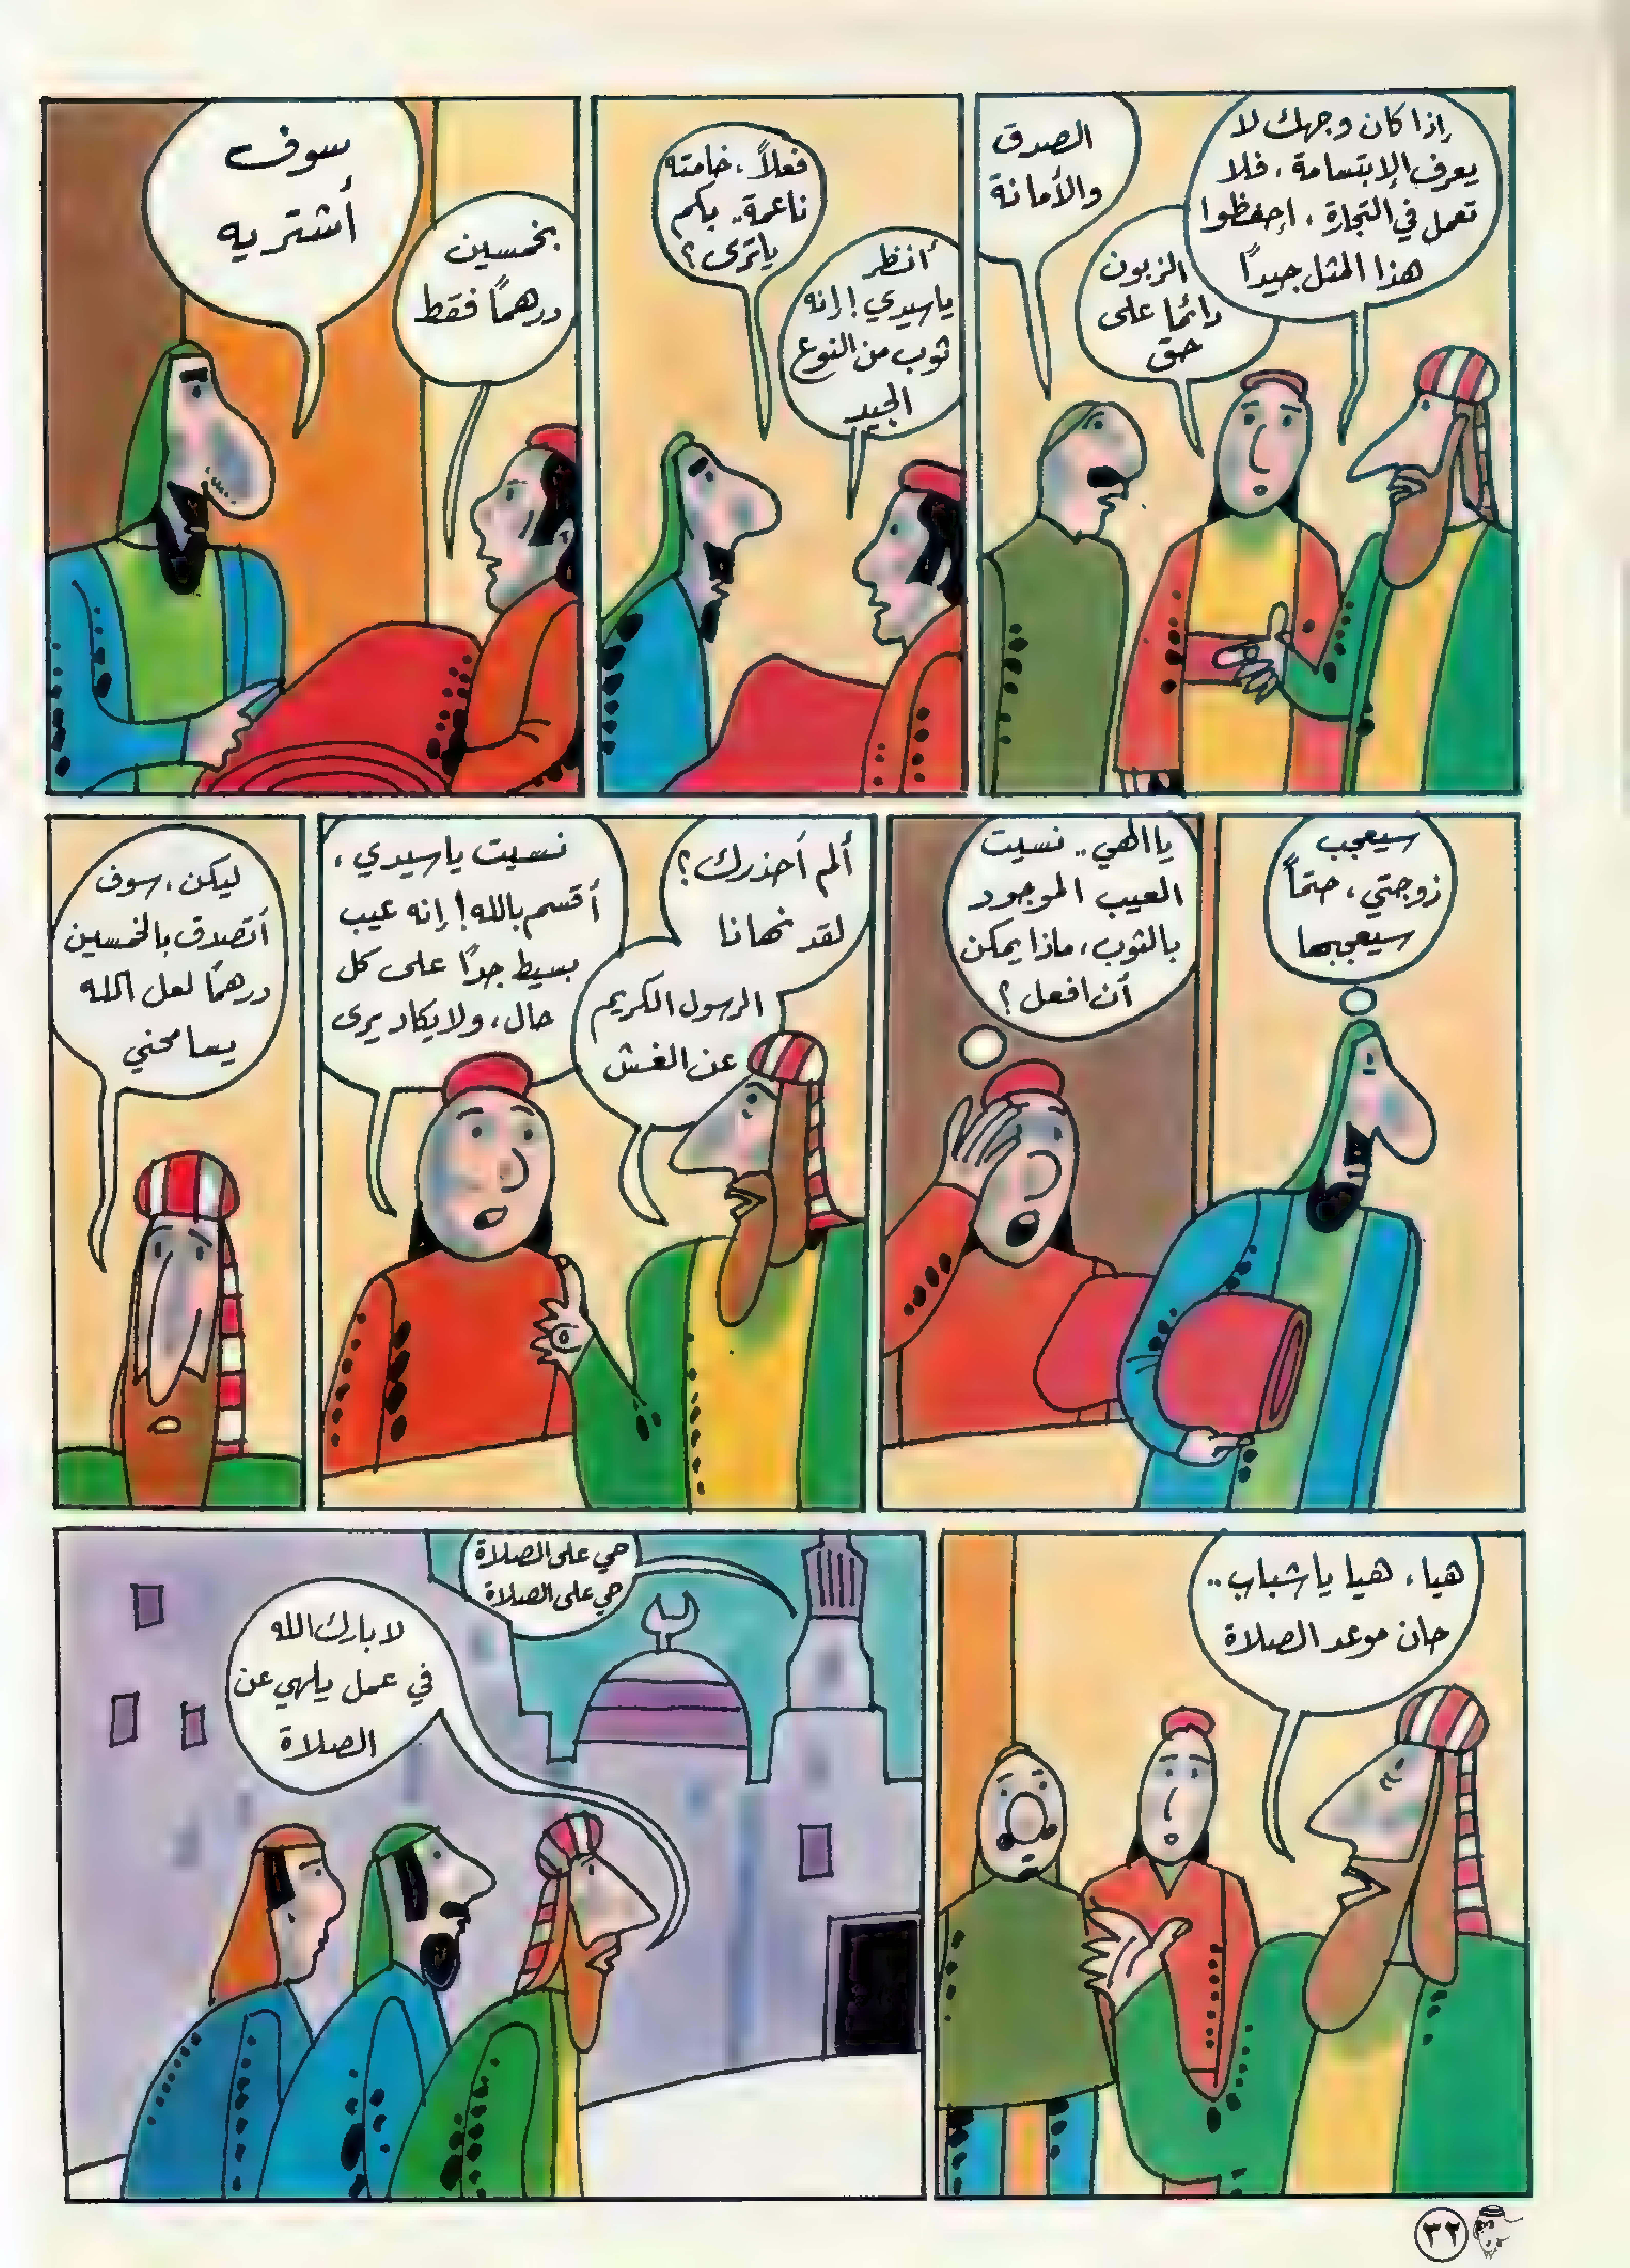 إذا كان وجهك لا
يعرف الإبتسامة، فلا
تعمل في التجارة، احفظوا
هذا المثل جيداً
الزبون
دائما على
حق
الصدق
والأمانة
أنظر
ياسيدي! إنه
ثوب من النوع
الجيد
فعلاً، خامته
ناعمة.. بكم
ياترى؟
بخمسين
درهماً فقط
سوف
أشتريه
سيعجب
زوجتي، حتماً
سيعجبها
ياالهي.. نسيت
العيب الموجود
بالثوب، ماذا يمكن
أن افعل؟
ألم أحذرك؟
لقد نهانا
الرسول الكريم
عن الغش
نسيت ياسيدي،
أقسم بالله! إنه عيب
بسيط جداً على كل
حال، ولايكاد يرى
ليكن، سوف
أتصدق بالخمسين
درهماً لعل الله
يسامحني
هيا، هيا ياشباب..
حان موعد الصلاة
حي على الصلاة
حي على الصلاة
لا بارك الله
في عمل يلهي عن
الصلاة
٣٢